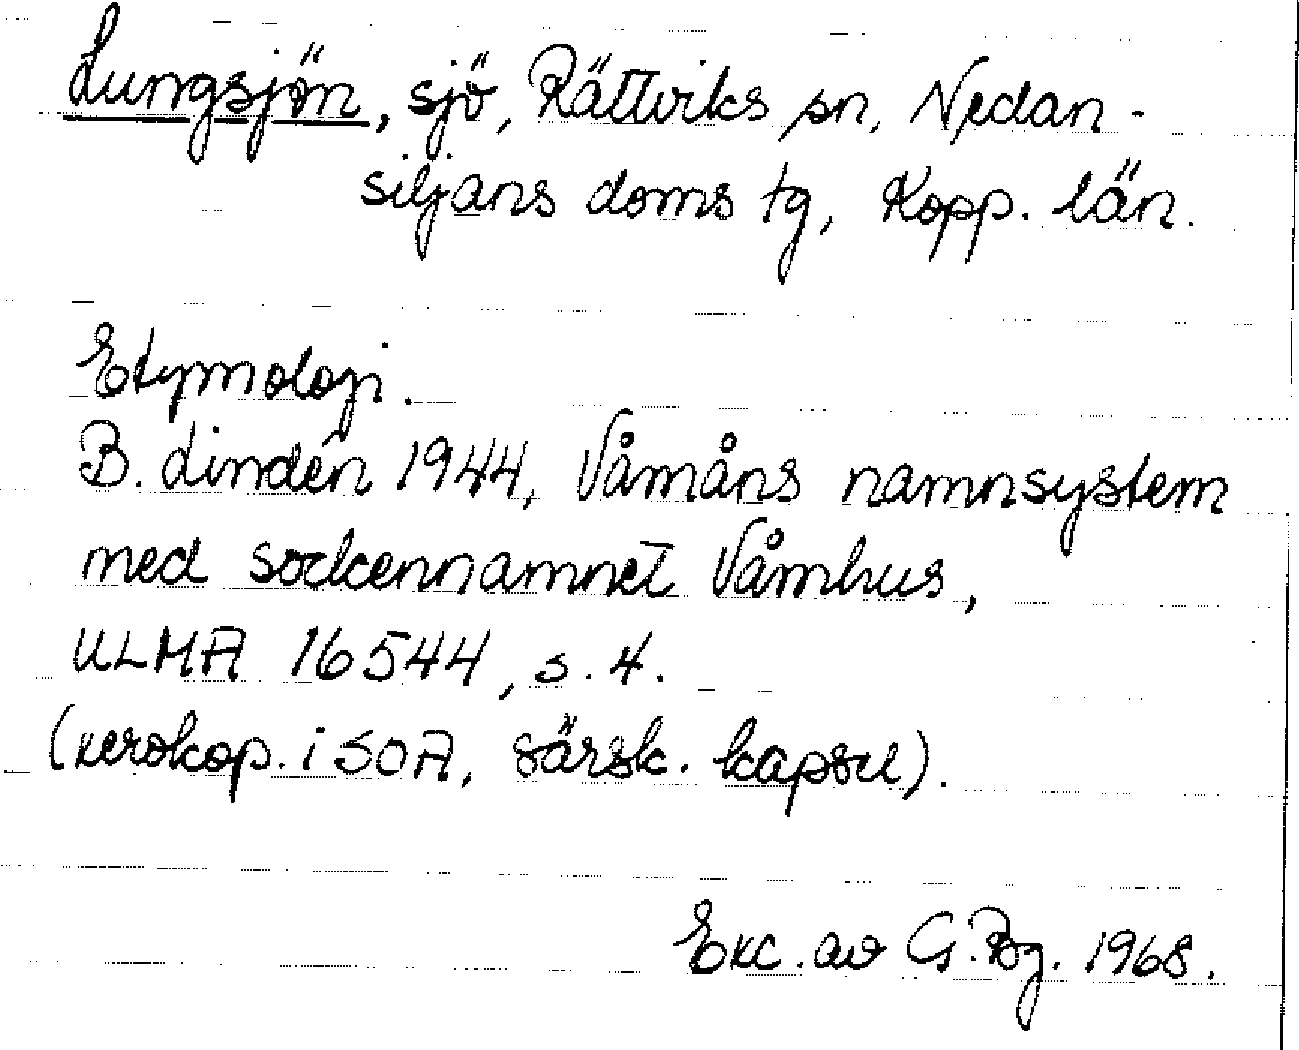 Lungsjön, sjö, Rättviks sn, Nedan-
siljans doms tg, Kopp. län.
Etymologi.
B. Lindén 1944, Våmåns namnsystem
med sockennamnet Våmhus,
ULMA 16544, s. 4.
(xerokop. i SOA, särsk. kapsel).
Exc. av G. Bg. 1968.